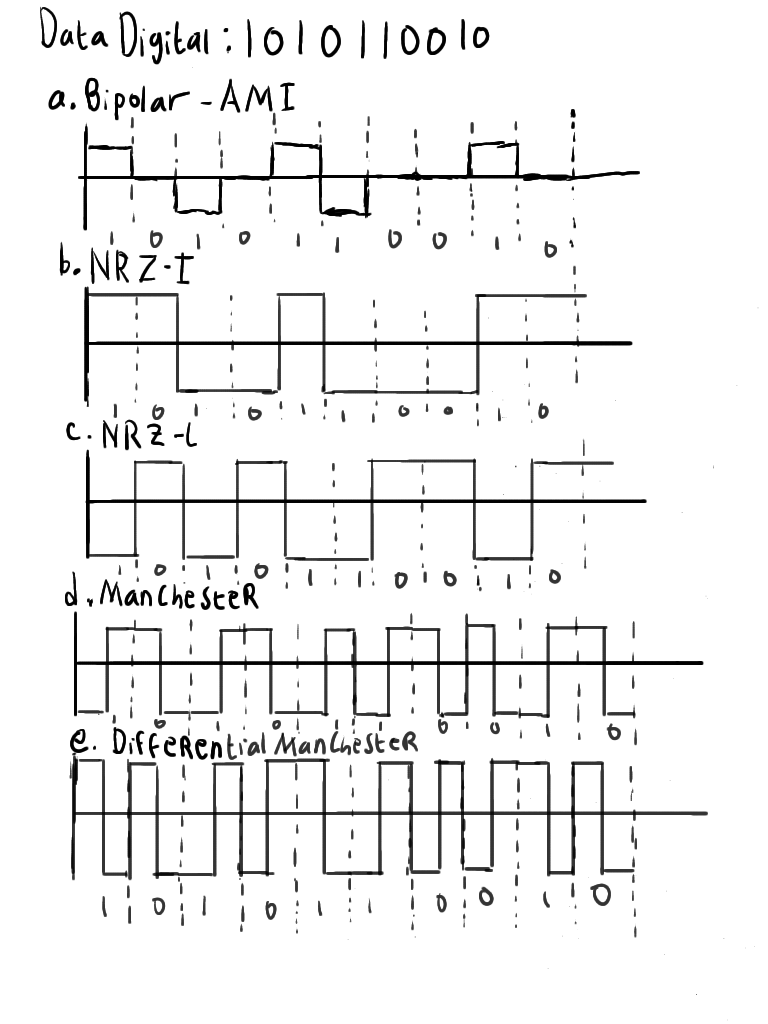 Data Digital : 1010110010
a. Bipolar - AMI
1 0 1 0 1 1 0 0 1 0
b. NRZ-I
1 0 1 0 1 1 0 0 1 0
c. NRZ-L
1 0 1 0 1 1 0 0 1 0
d. Manchester
1 0 1 0 1 1 0 0 1 0
e. Differential Manchester
1 0 1 0 1 1 0 0 1 0